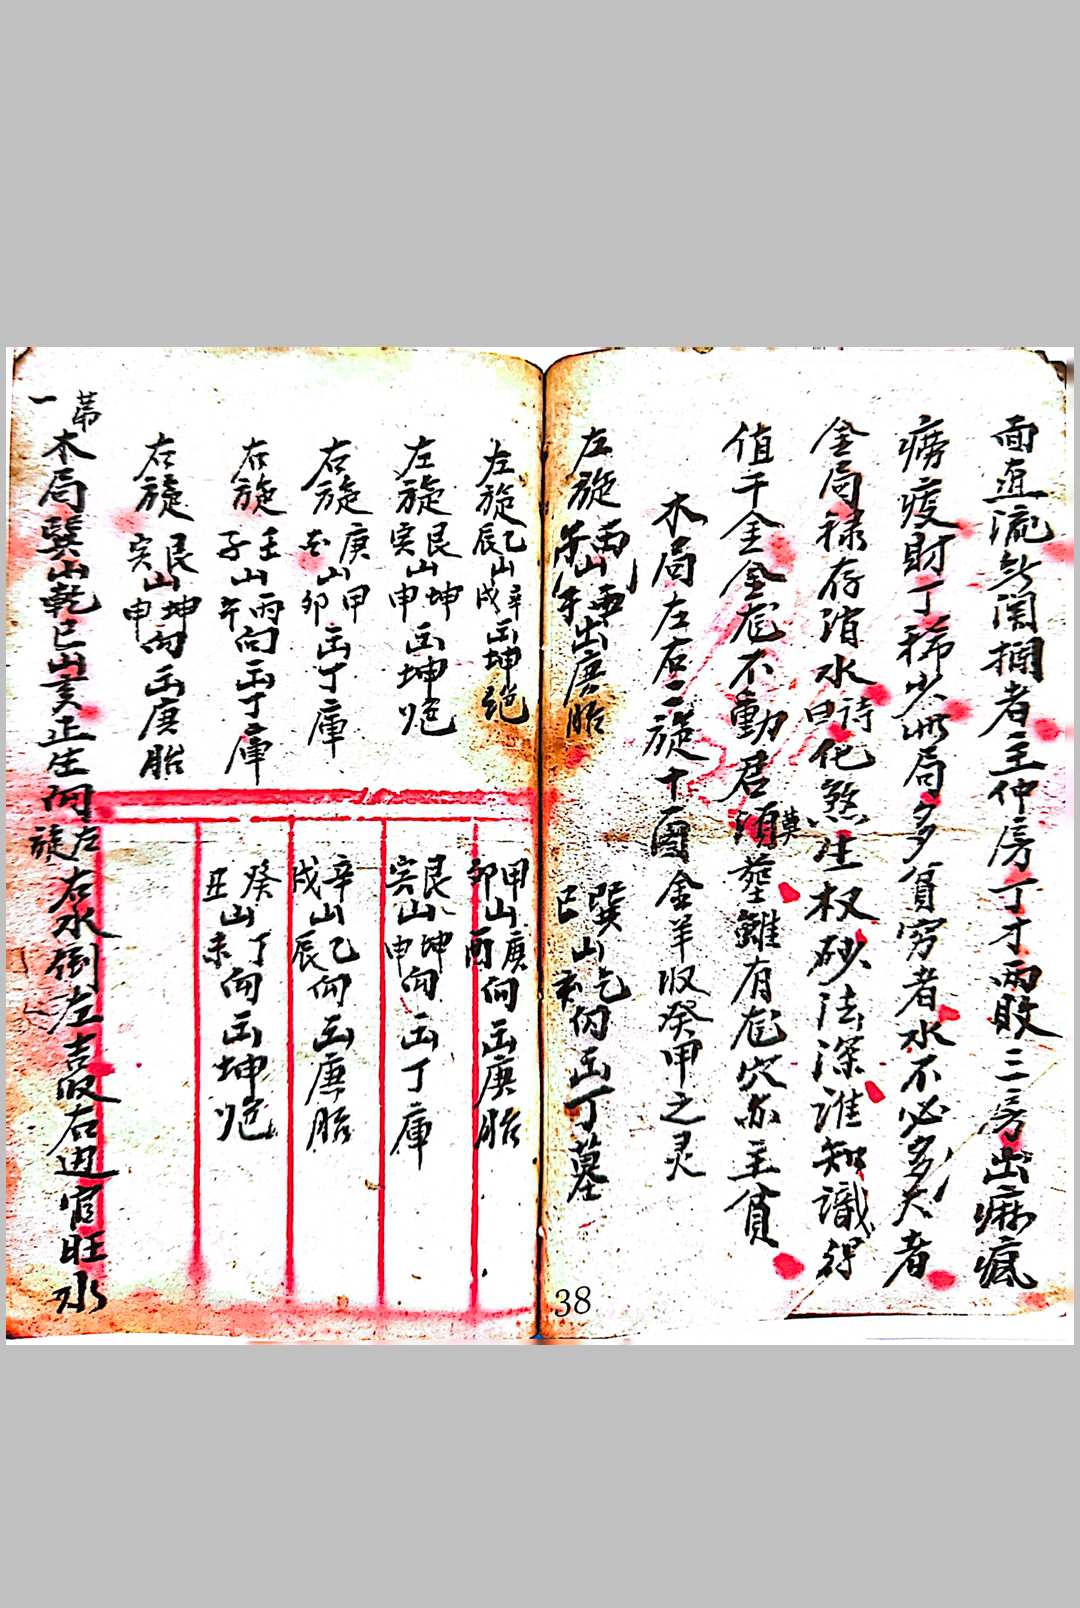 面直流無關攔者主仲房丁才兩敗三房出痳瘋
癆疫財丁稀少此局多貧穷者水不必多大者
金局禄存消水詩曰化煞生权砂法深谁知識得
值千金金龙不動君莫須塟雖有龙穴亦主貧
木局左右二旋十圖金羊収癸甲之灵
左旋 丙山 出庚胎
巽巳山乾亥向出丁墓
左旋乙辰山辛戌出坤絕
甲卯山庚酉向出庚胎
左旋艮寅山坤申出坤绝
艮寅山坤申向出丁庫
右旋庚酉山甲卯出丁庫
辛戌山乙辰向出庚胎
右旋壬子山丙午向出丁庫
癸丑山丁未向出坤绝
右旋艮寅山坤申向出庚胎
苐一木局巽山乾巳山亥正生向左旋右水倒左喜収右边官旺水
38